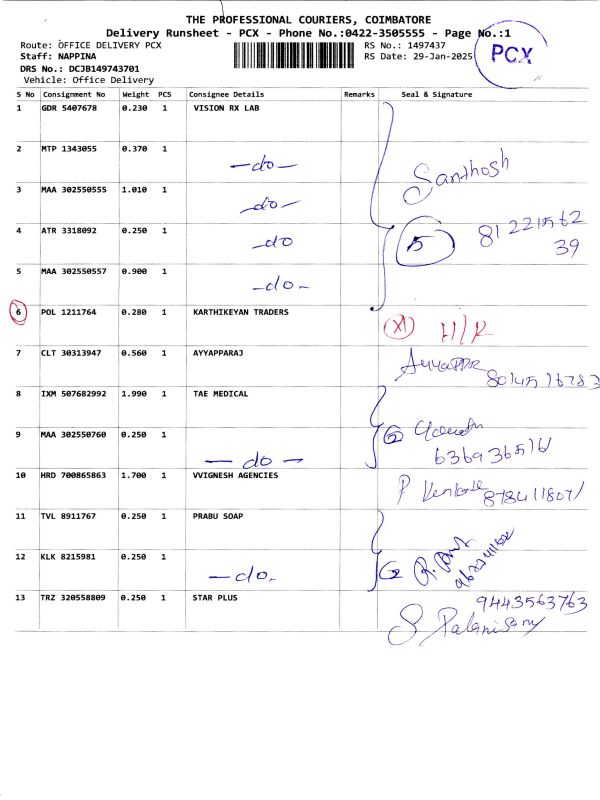 THE PROFESSIONAL COURIERS, COIMBATORE
Delivery Runsheet - PCX - Phone No.:0422-3505555 - Page No.:1
Route: OFFICE DELIVERY PCX
RS No.: 1497437
Staff: NAPPINA
RS Date: 29-Jan-2025
DRS No.: DCJB149743701
Vehicle: Office Delivery
PCX
S No Consignment No Weight PCS Consignee Details Remarks Seal & Signature
1 GDR 5407678 0.230 1 VISION RX LAB
2 MTP 1343055 0.370 1
-do-
Santhosh
3 MAA 302550555 1.010 1
-do-
4 ATR 3318092 0.250 1
-do
5 81 221562
39
5 MAA 302550557 0.900 1
-do-
6 POL 1211764 0.280 1 KARTHIKEYAN TRADERS
7 CLT 30313947 0.560 1 AYYAPPARAJ
8 IXM 507682992 1.990 1 TAE MEDICAL
9 MAA 302550760 0.250 1
- do -
2
10 HRD 700865863 1.700 1 VVIGNESH AGENCIES
P
11 TVL 8911767 0.250 1 PRABU SOAP
12 KLK 8215981 0.250 1
-do.
2
13 TRZ 320558809 0.250 1 STAR PLUS
9443563763
S Palanisamy